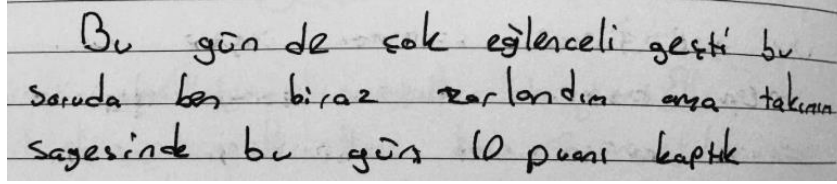 Bu gün de çok eğlenceli geçti bu
soruda ben biraz zorlandım ama takımın
sayesinde bu gün 10 puanı kaptık